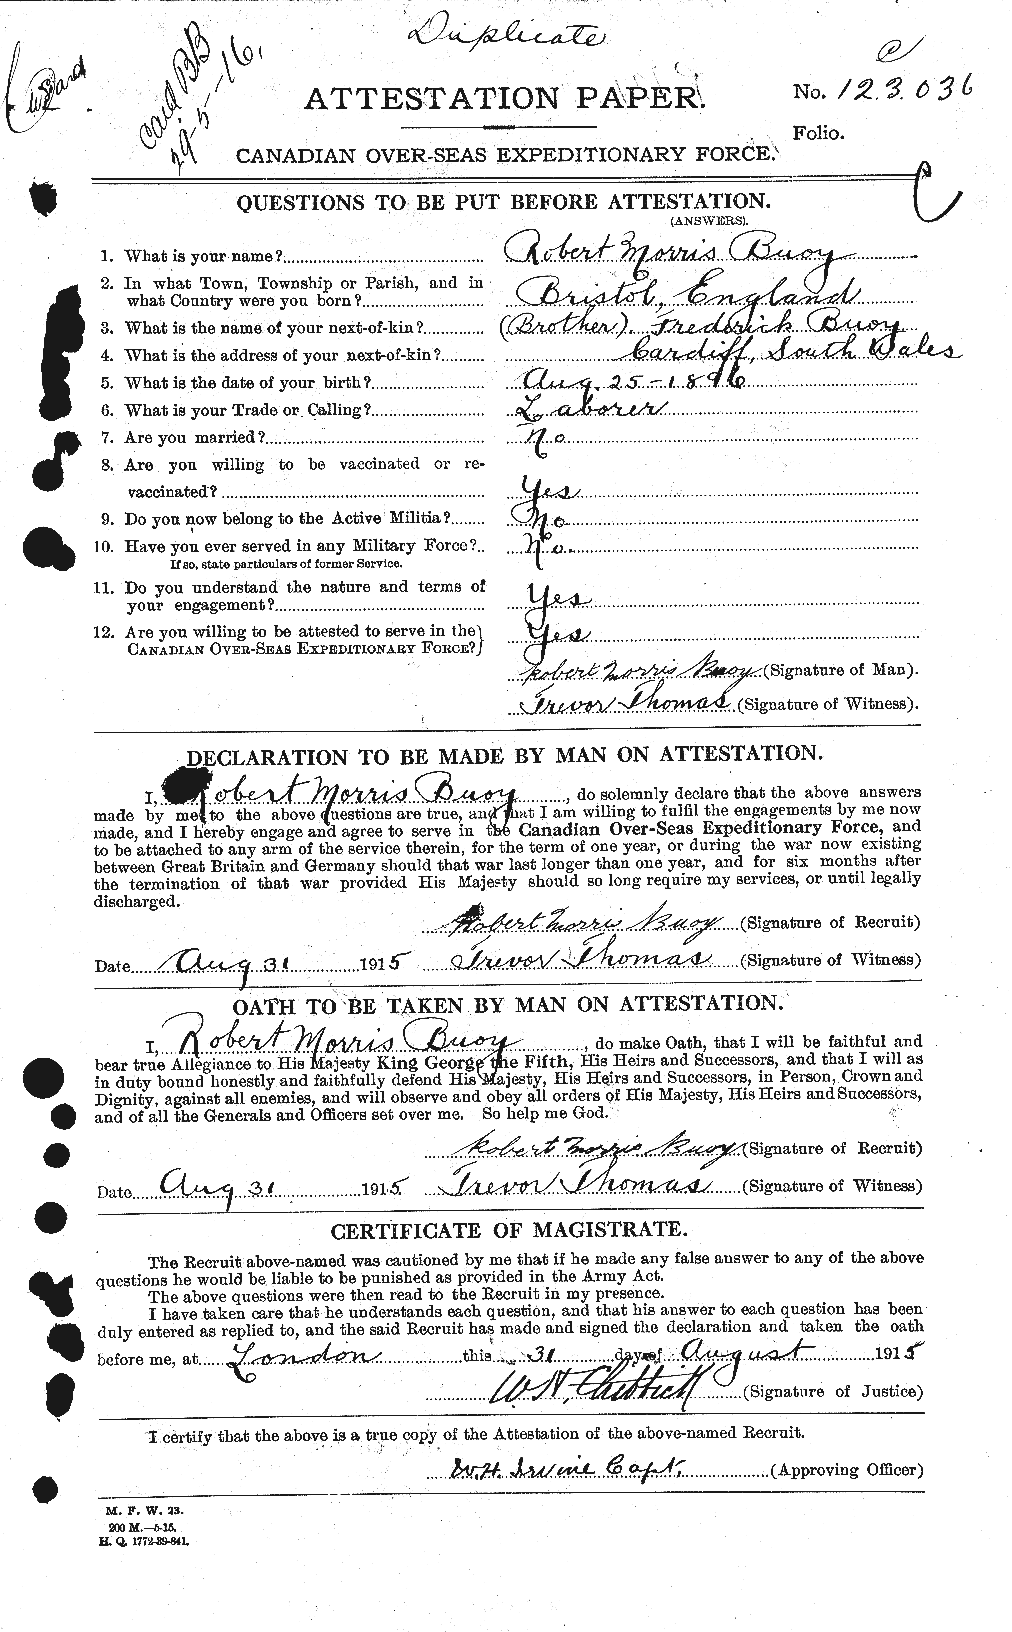 Duplicate
C
Card BB
29-5-16.
ATTESTATION PAPER.
No. 123036
Folio.
CANADIAN OVER-SEAS EXPEDITIONARY FORCE.
C
QUESTIONS TO BE PUT BEFORE ATTESTATION.
(ANSWERS).
1. What is your name? Robert Morris Buoy
2. In what Town, Township or Parish, and in
what Country were you born? Bristol, England
3. What is the name of your next-of-kin? (Brother). Frederick Buoy
4. What is the address of your next-of-kin? Cardiff, South Wales
5. What is the date of your birth? Aug. 25-1896
6. What is your Trade or Calling? Laborer
7. Are you married? No
8. Are you willing to be vaccinated or re-
vaccinated? Yes
9. Do you now belong to the Active Militia? No
10. Have you ever served in any Military Force? No.
If so, state particulars of former Service.
11. Do you understand the nature and terms of
your engagement? Yes
12. Are you willing to be attested to serve in the
CANADIAN OVER-SEAS EXPEDITIONARY FORCE? Yes
Robert Morris Buoy (Signature of Man).
Trevor Thomas (Signature of Witness).
DECLARATION TO BE MADE BY MAN ON ATTESTATION.
I, Robert Morris Buoy, do solemnly declare that the above answers
made by me to the above questions are true, and that I am willing to fulfil the engagements by me now
made, and I hereby engage and agree to serve in the Canadian Over-Seas Expeditionary Force, and
to be attached to any arm of the service therein, for the term of one year, or during the war now existing
between Great Britain and Germany should that war last longer than one year, and for six months after
the termination of that war provided His Majesty should so long require my services, or until legally
discharged.
Robert Morris Buoy (Signature of Recruit)
Date Aug 31 1915 Trevor Thomas (Signature of Witness)
OATH TO BE TAKEN BY MAN ON ATTESTATION.
I, Robert Morris Buoy, do make Oath, that I will be faithful and
bear true Allegiance to His Majesty King George the Fifth, His Heirs and Successors, and that I will as
in duty bound honestly and faithfully defend His Majesty, His Heirs and Successors, in Person, Crown and
Dignity, against all enemies, and will observe and obey all orders of His Majesty, His Heirs and Successors,
and of all the Generals and Officers set over me. So help me God.
Robert Morris Buoy (Signature of Recruit)
Date Aug 31 1915 Trevor Thomas (Signature of Witness)
CERTIFICATE OF MAGISTRATE.
The Recruit above-named was cautioned by me that if he made any false answer to any of the above
questions he would be liable to be punished as provided in the Army Act.
The above questions were then read to the Recruit in my presence.
I have taken care that he understands each question, and that his answer to each question has been
duly entered as replied to, and the said Recruit has made and signed the declaration and taken the oath
before me, at London this 31 day of August 1915
W.H. Chittick (Signature of Justice)
I certify that the above is a true copy of the Attestation of the above-named Recruit.
W.H. Irvine Capt. (Approving Officer)
M. F. W. 23.
200 M.—5-15.
H. Q. 1772-39-841.